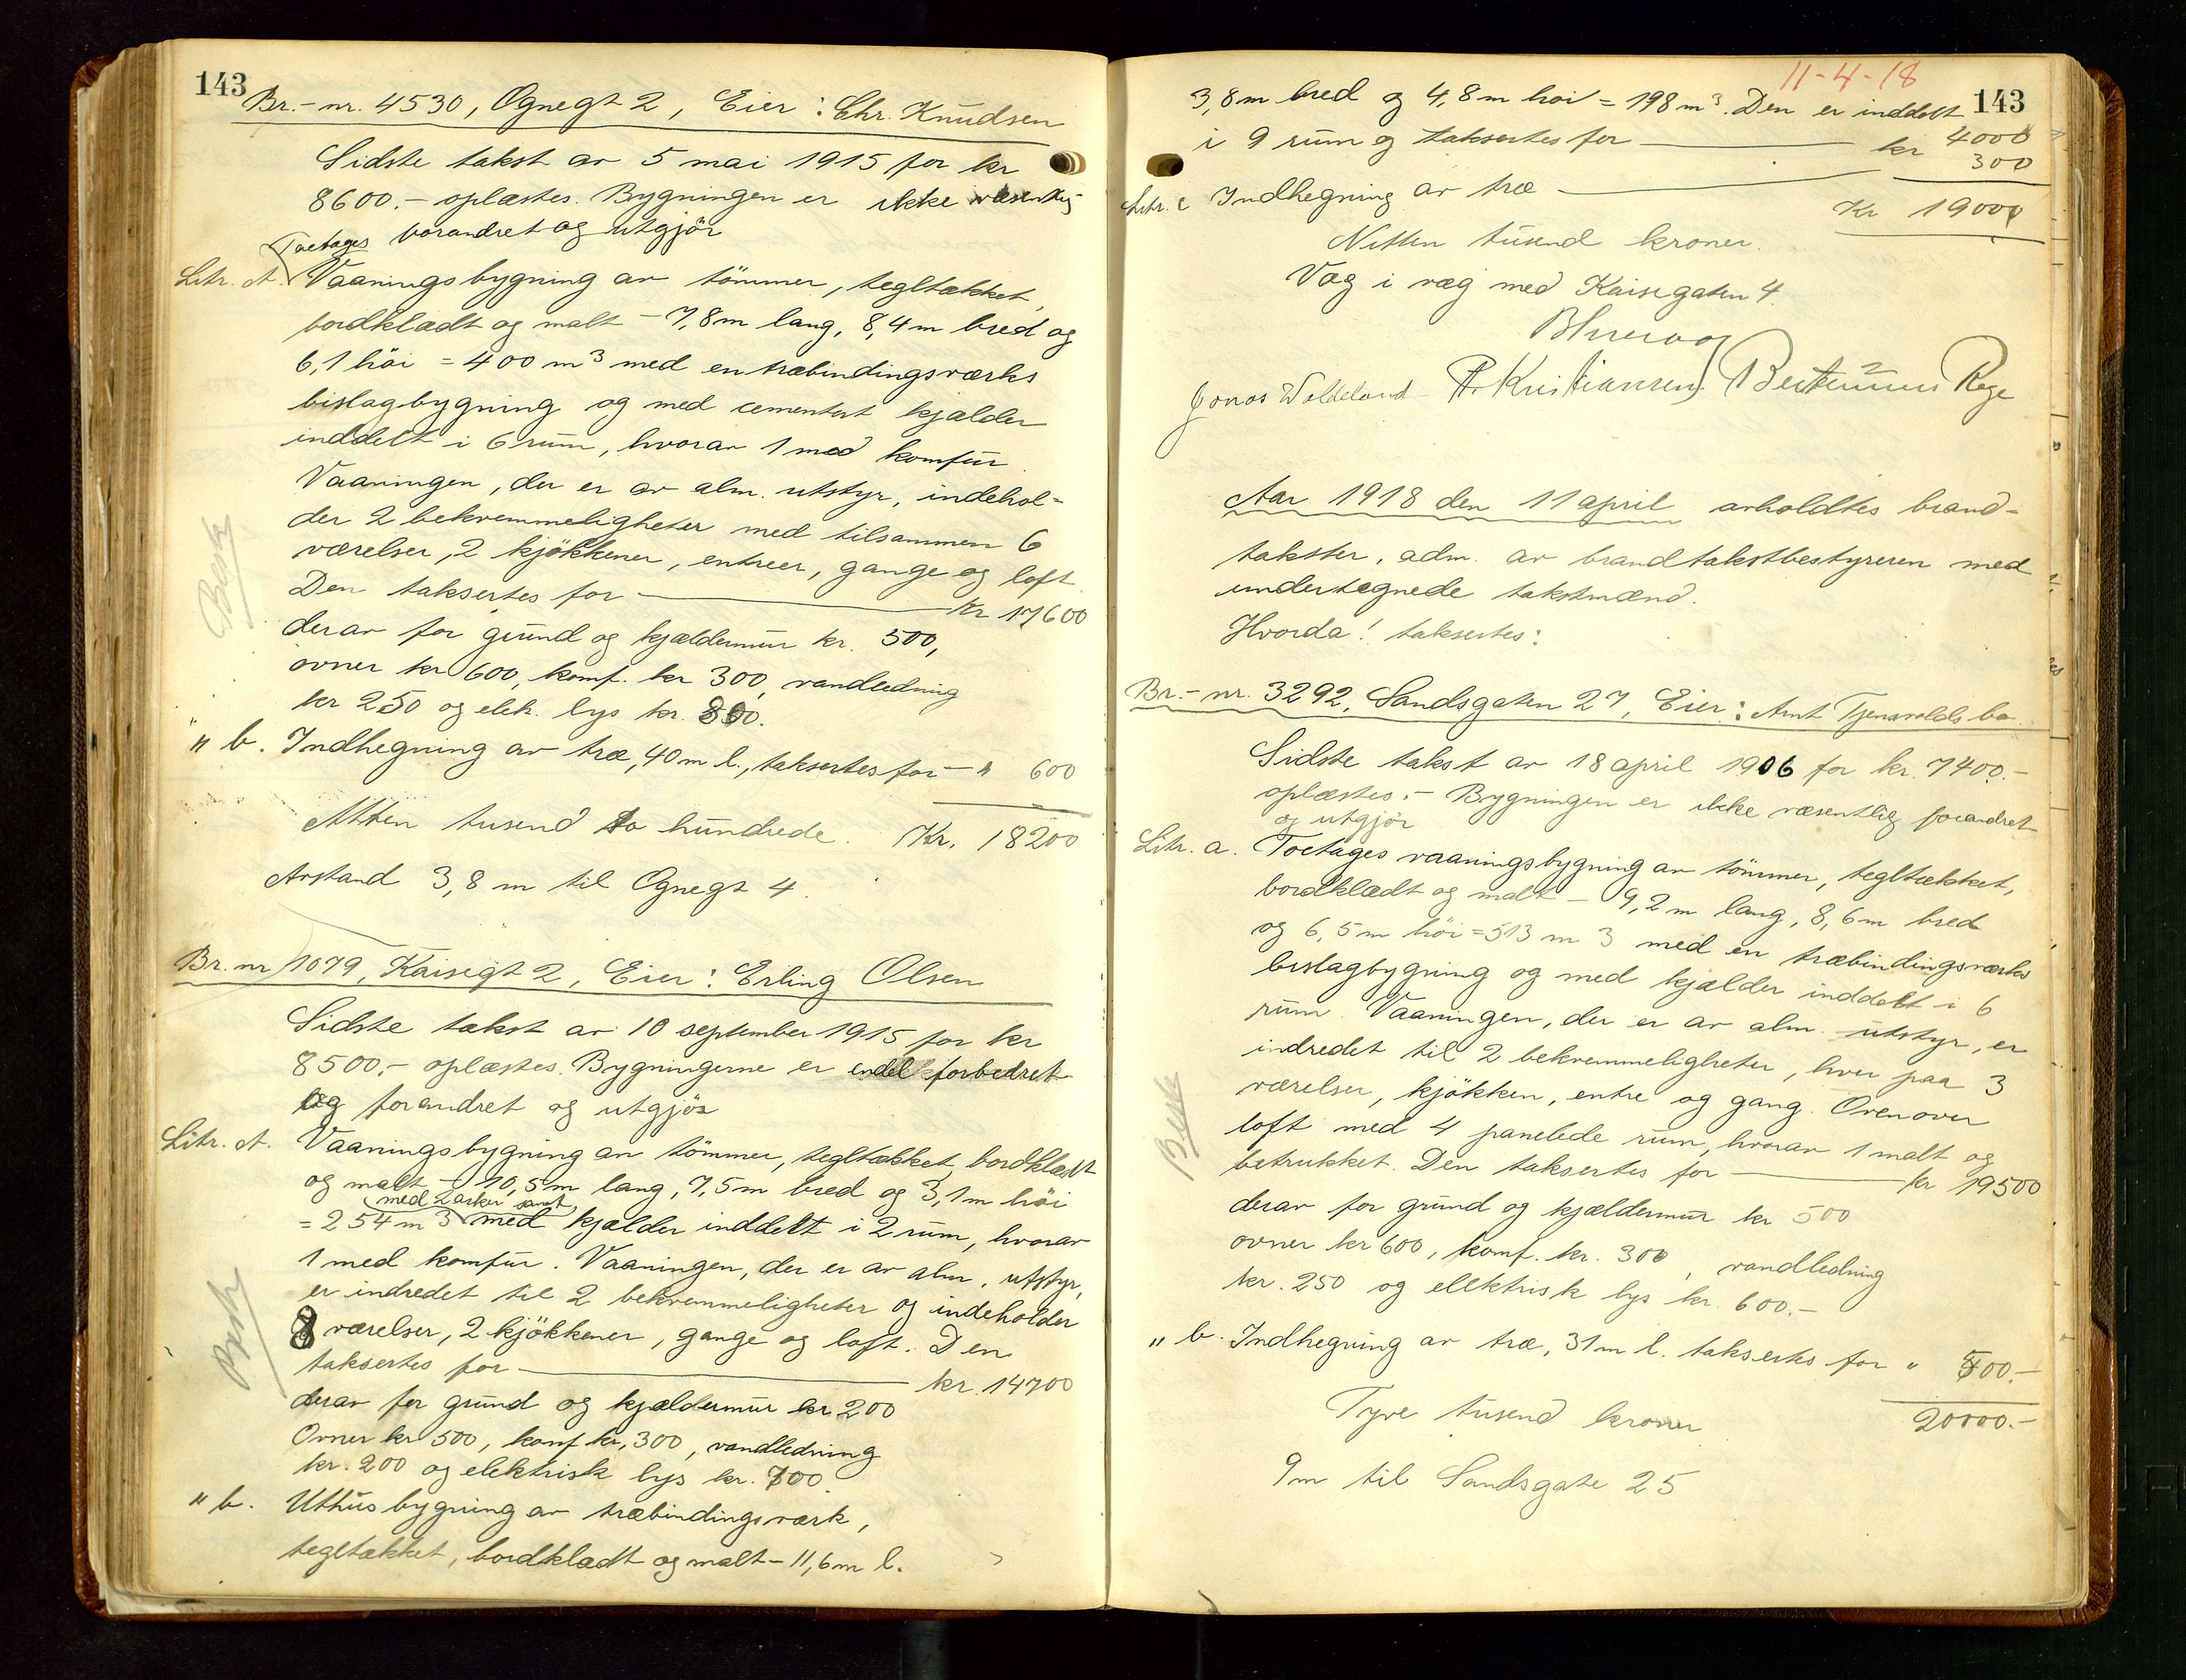 143
Br.-nr. 4530, Ognegt 2, Eier: Chr. Knudsen
Sidste takst av 5 mai 1915 for kr
8600.- oplæstes. Bygningen er ikke væsentlig
forandret og utgjör
Toetages
Litr. A. Vaaningsbygning av tömmer, tegltækket,
bordklædt og malt - 7,8 m lang, 8,4 m bred og
6,1 höi = 400 m3 med en træbindingsværks
bislagbygning og med cementert kjælder
inddelt i 6 rum, hvorav 1 med komfur.
Vaaningen, der er av alm. utstyr, indehol=
der 2 bekvemmeligheter med tilsammen 6
værelser, 2 kjökkener, entreer, gange og loft.
Den taksertes for — kr 17600
derav for grund og kjældermur kr. 500,
ovner kr 600, komf. kr 300, vandledning
kr 250 og elek. lys kr. 800.
" b. Indhegning av træ, 40 m l., taksertes for - " 600
Atten tusend to hundrede. Kr. 18200
Avstand 3,8 m til Ognegt 4.
Br. nr 1079, Kaisegt 2, Eier: Erling Olsen
Sidste takst av 10 september 1915 for kr
8500,- oplæstes. Bygningerne er endel forbedret
og forandret og utgjör
Litr. A. Vaaningsbygning av tömmer, tegltækket, bordklædt
og malt - 10,5 m lang, 7,5 m bred og 3,1 m höi
med 2 arker samt
= 254 m3 med kjælder inddelt i 2 rum, hvorav
1 med komfur. Vaaningen, der er av alm. utstyr,
er indredet til 2 bekvemmeligheter og indeholder
8 værelser, 2 kjökkener, gange og loft. Den
taksertes for — kr. 14700
derav for grund og kjældermur kr 200
Ovner kr 500, komf kr, 300, vandledning
kr. 200 og elektrisk lys kr. 700.
" b. Uthusbygning av træbindingsværk,
tegltækket, bordklædt og malt - 11,6 m l.
11-4-18
143
3,8 m bred og 4,8 m höi = 198 m3. Den er inddelt
i 9 rum og taksertes for — kr 4000
Litr. c Indhegning av træ — 300
Kr 19000
Nitten tusend kroner.
Væg i væg med Kaisegaten 4.
Jonas Waldeland P. Kristiansen Bertinius Rege
Aar 1918 den 11 april avholdtes brand-
takster, adm. av brandtakstbestyreren med
undertegnede takstmænd.
Hvorda! taksertes:
Br.-nr. 3292, Sandsgaten 27, Eier: Arnt Tjensvolds bo
Sidste takst av 18 april 1906 for kr. 7400.-
oplæstes.- Bygningen er ikke væsentlig forandret
og utgjör
Litr. a. Toetages vaaningsbygning av tömmer, tegltækket,
bordklædt og malt - 9,2 m lang, 8,6 m bred
og 6,5 m höi = 513 m3 med en træbindingsværks
bislagbygning og med kjælder inddelt i 6
rum. Vaaningen, der er av alm. utstyr, er
indredet til 2 bekvemmeligheter, hver paa 3
værelser, kjökken, entre og gang. Ovenover
loft med 4 panelede rum, hvorav 1 malt og
betrukket. Den taksertes for — kr 19500
derav for grund og kjældermur kr 500
ovner kr 600, komf. kr. 300, vandledning
kr. 250 og elektrisk lys kr. 600.-
" b. Indhegning av træ, 31 m l. taksertes for " 500.-
Tyve tusend kroner 20000.-
9m til Sandsgate 25